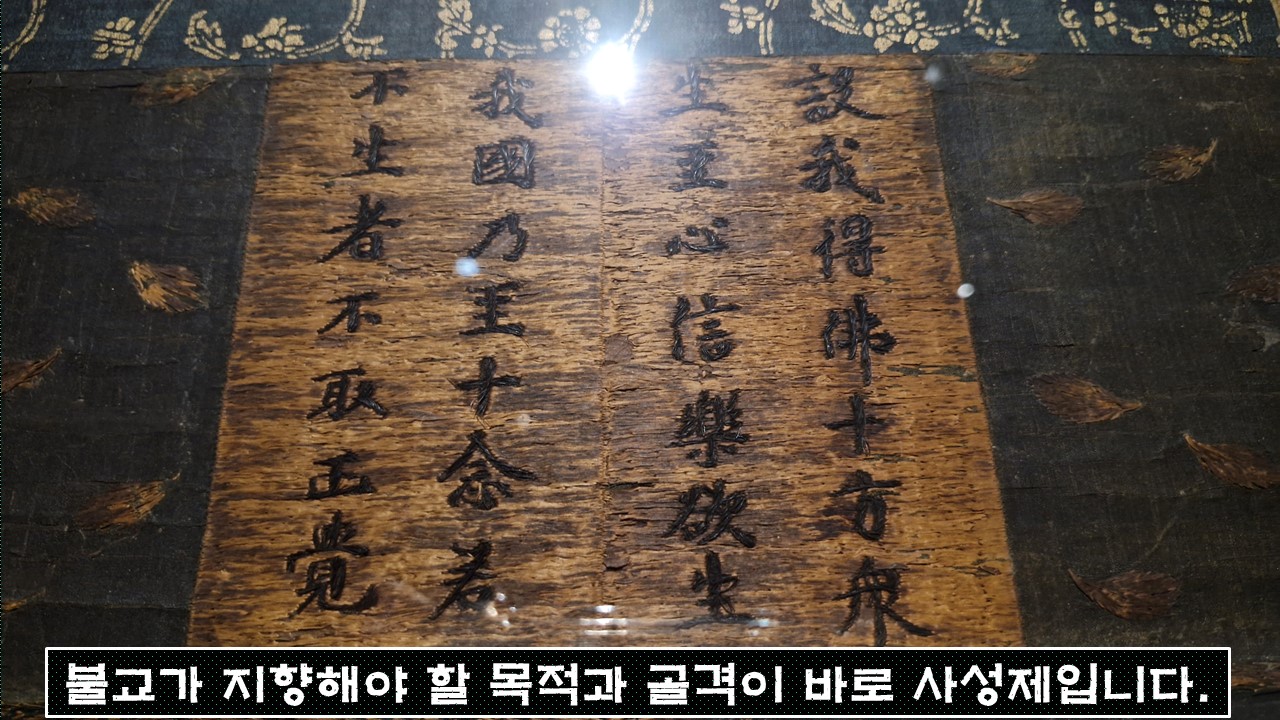 設我得佛十方衆
生至心信樂欲生
我國乃至十念若
不生者不取正覺
불교가 지향해야 할 목적과 골격이 바로 사성제입니다.